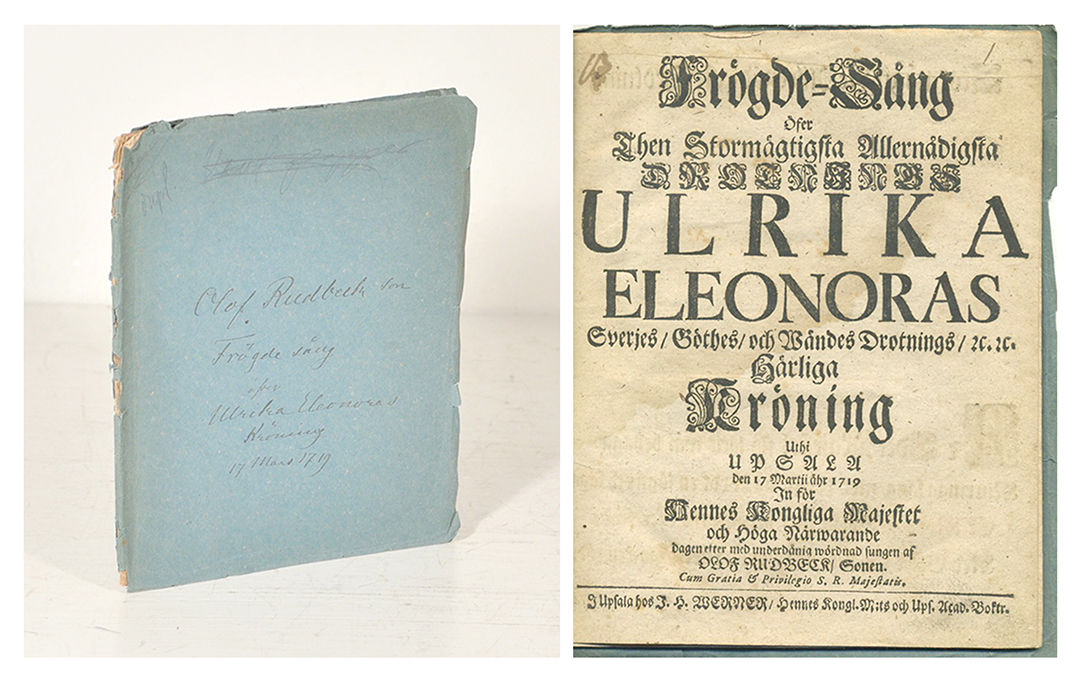 dupl.
Olof Rudbeck son
Frögde sång
ofer
Ulrika Eleonoras
Kröning
17 Mars 1719
Frögde-Sång
Öfer
Then Stormägtigsta Allernådigsta
DROTNINGS
ULRIKA
ELEONORAS
Sverjes/ Göthes/ och Wändes Drotnings/ ꝛc. ꝛc.
Härliga
Kröning
Uthi
UPSALA
den 17 Martii åhr 1719
In för
Hennes Kongliga Majestet
och Höga Närwarande
dagen efter med underdånig wördnad sungen af
OLOF RUDBECK/ Sonen.
Cum Gratia & Privilegio S. R. Majestatis.
I Upsala hos J. H. WERNER/ Hennes Kongl. M:ts och Ups. Acad. Boktr.